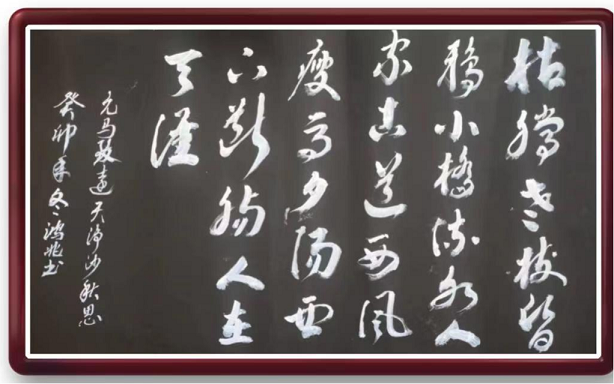 枯藤老树昏
鸦小橋流水人
家古道西风
瘦马夕陽西
下断肠人在
天涯
元马致远天净沙秋思
癸卯年冬鸿兆书